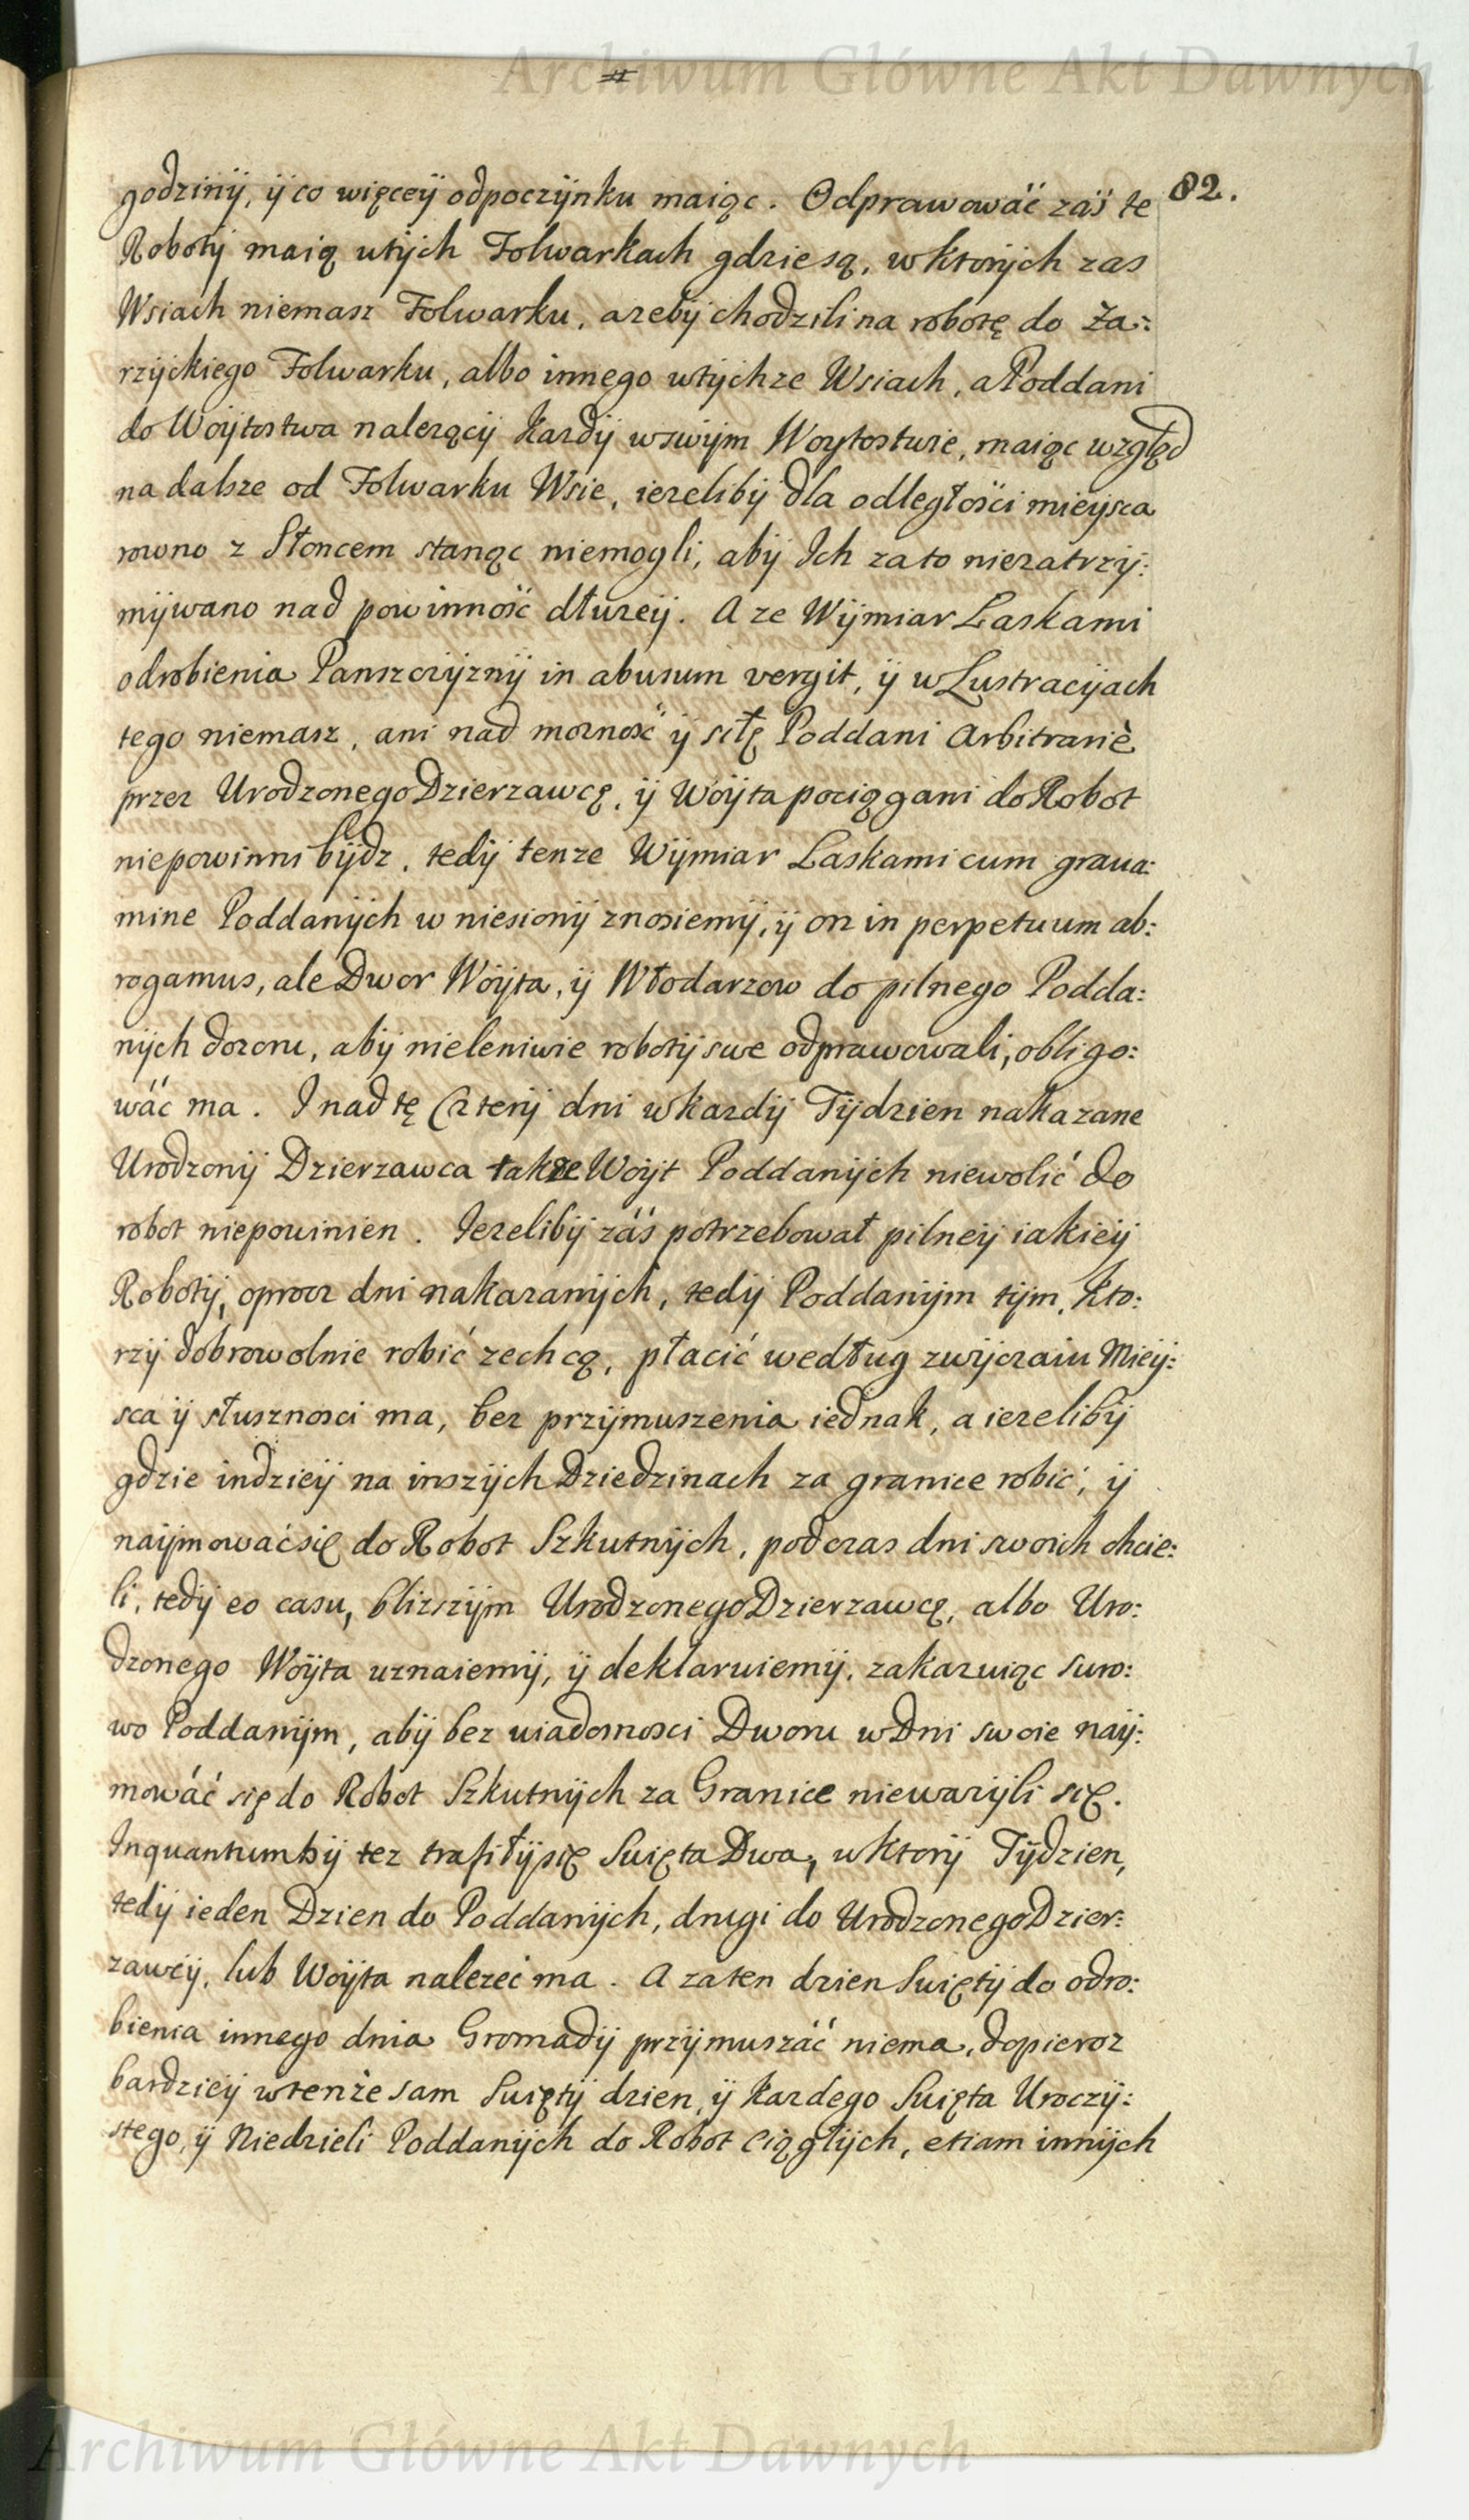 Archiwum Główne Akt Dawnych
#
82.
godzinÿ, ÿ co więceÿ odpoczÿnku maiąc. Odprawowáć záś te
Robotÿ maią wtÿch Folwarkach gdzie są, w ktorÿch zas
Wsiach niemasz Folwarku, azebÿ chodzili na robotę do Za:
rzÿckiego Folwarku, albo innego wtÿchze Wsiach, a Poddani
do Woÿtostwa nalezącÿ kazdÿ wswÿm Woytostwie, maiąc wzgląd
na dalsze od Folwarku Wsie, iezelibÿ dla odległości mieÿsca
rowno z Słoncem stanąc niemogli, abÿ Ich zato niezatrzÿ:
mÿwano nad powinność dłuzeÿ. A ze Wÿmiar Laskami
odrobienia Panszczÿznÿ in abusum vergit, ÿ w Lustracÿach
tego niemasz, ani nad moznosć ÿ siłę Poddani Arbitrariè
przez Urodzonego Dzierzawcę, ÿ Woÿta pociągani do Robot
niepowinni bÿdz, tedÿ tenze Wÿmiar Laskami cum grava:
mine Poddanÿch w niesionÿ znosiemÿ, ÿ on in perpetuum ab:
rogamus, ale Dwor Woÿta, ÿ Włodarzow do pilnego Podda:
nÿch dozoru, abÿ nieleniwie robotÿ swe odprawowali, obligo:
wáć ma. I nad tę Czterÿ dni w kazdÿ Tÿdzien nakazane
Urodzonÿ Dzierzawca takze Woÿt Poddanÿch niewolić do
robot niepowinien. Iezelibÿ záś potrzebował pilneÿ iakieÿ
Robotÿ, oprocz dni nakazanÿch, tedÿ Poddanÿm tÿm, kto:
rzÿ dobrowolnie robić zechcą, płacić według zwÿczaiu Mieÿ:
sca ÿ słusznosci ma, bez przÿmuszenia iednak, a iezelibÿ
gdzie indzieÿ na inszÿch Dziedzinach za granice robić, ÿ
naÿmować się do Robot Szkutnÿch, podczas dni swoich chcie:
li, tedÿ eo casu, blizszÿm Urodzonego Dzierzawcę, albo Uro:
dzonego Woÿta uznaiemÿ, ÿ deklaruiemÿ, zakazuiąc suro:
wo Poddanÿm, abÿ bez wiadomosci Dworu w Dni swoie naÿ:
mowáć się do Robot Szkutnÿch za Granice niewazÿli się.
Inquantumbÿ tez trafiłÿ się Swięta Dwa, w ktorÿ Tÿdzien,
tedÿ ieden Dzien do Poddanÿch, drugi do Urodzonego Dzier:
zawcÿ, lub Woÿta nalezeć ma. A za ten dzien Swiętÿ do odro:
bienia innego dnia Gromadÿ przÿmuszáć niema, dopieroz
bardzieÿ wtenże sam Swiętÿ dzien, ÿ kazdego Swięta Uroczÿ:
stego, ÿ Niedzieli Poddanÿch do Robot ciągłÿch, etiam innÿch
Archiwum Główne Akt Dawnych